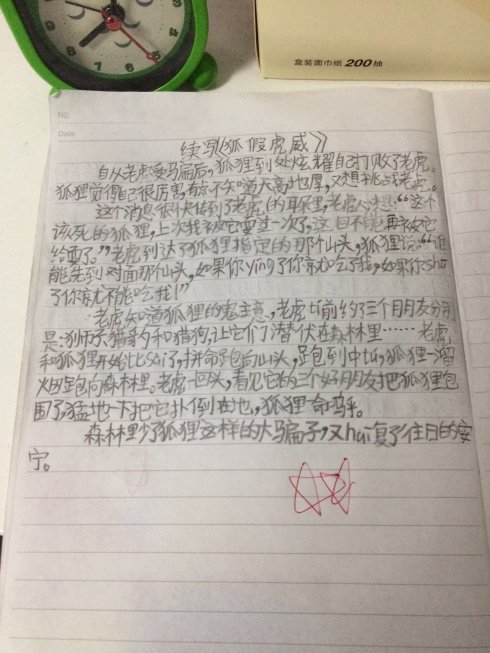 盒装面巾纸 200抽
No.
Date
续写《狐假虎威》
自从老虎受骗后，狐狸到处炫耀自己打败了老虎。
狐狸觉得自己很厉害，有点不知道天高地厚，又想挑战老虎。
这个消息很快传到了老虎的耳朵里，老虎心想：“这个
该死的狐狸，上次我被它耍过一次了，这回不能再被它
给耍了。”老虎到达了狐狸指定的那个山头，狐狸说：“谁
能先到对面那个山头，如果你ying了你就吃了我，如果你shu
了你就不能吃我！”
老虎知道狐狸的鬼主意，老虎比前约了三个朋友分别
是：狮子、猎豹和猎狗，让它们潜伏在森林里……老虎
和狐狸开始比sai了，拼命跑向山头，跑到中比，狐狸一溜
烟跑向森林里。老虎一回头，看见它的三个好朋友把狐狸包
围了，猛地一下把它扑倒在地，狐狸一命呜乎。
森林里少了狐狸这样的大骗子，又hui复了往日的安
宁。